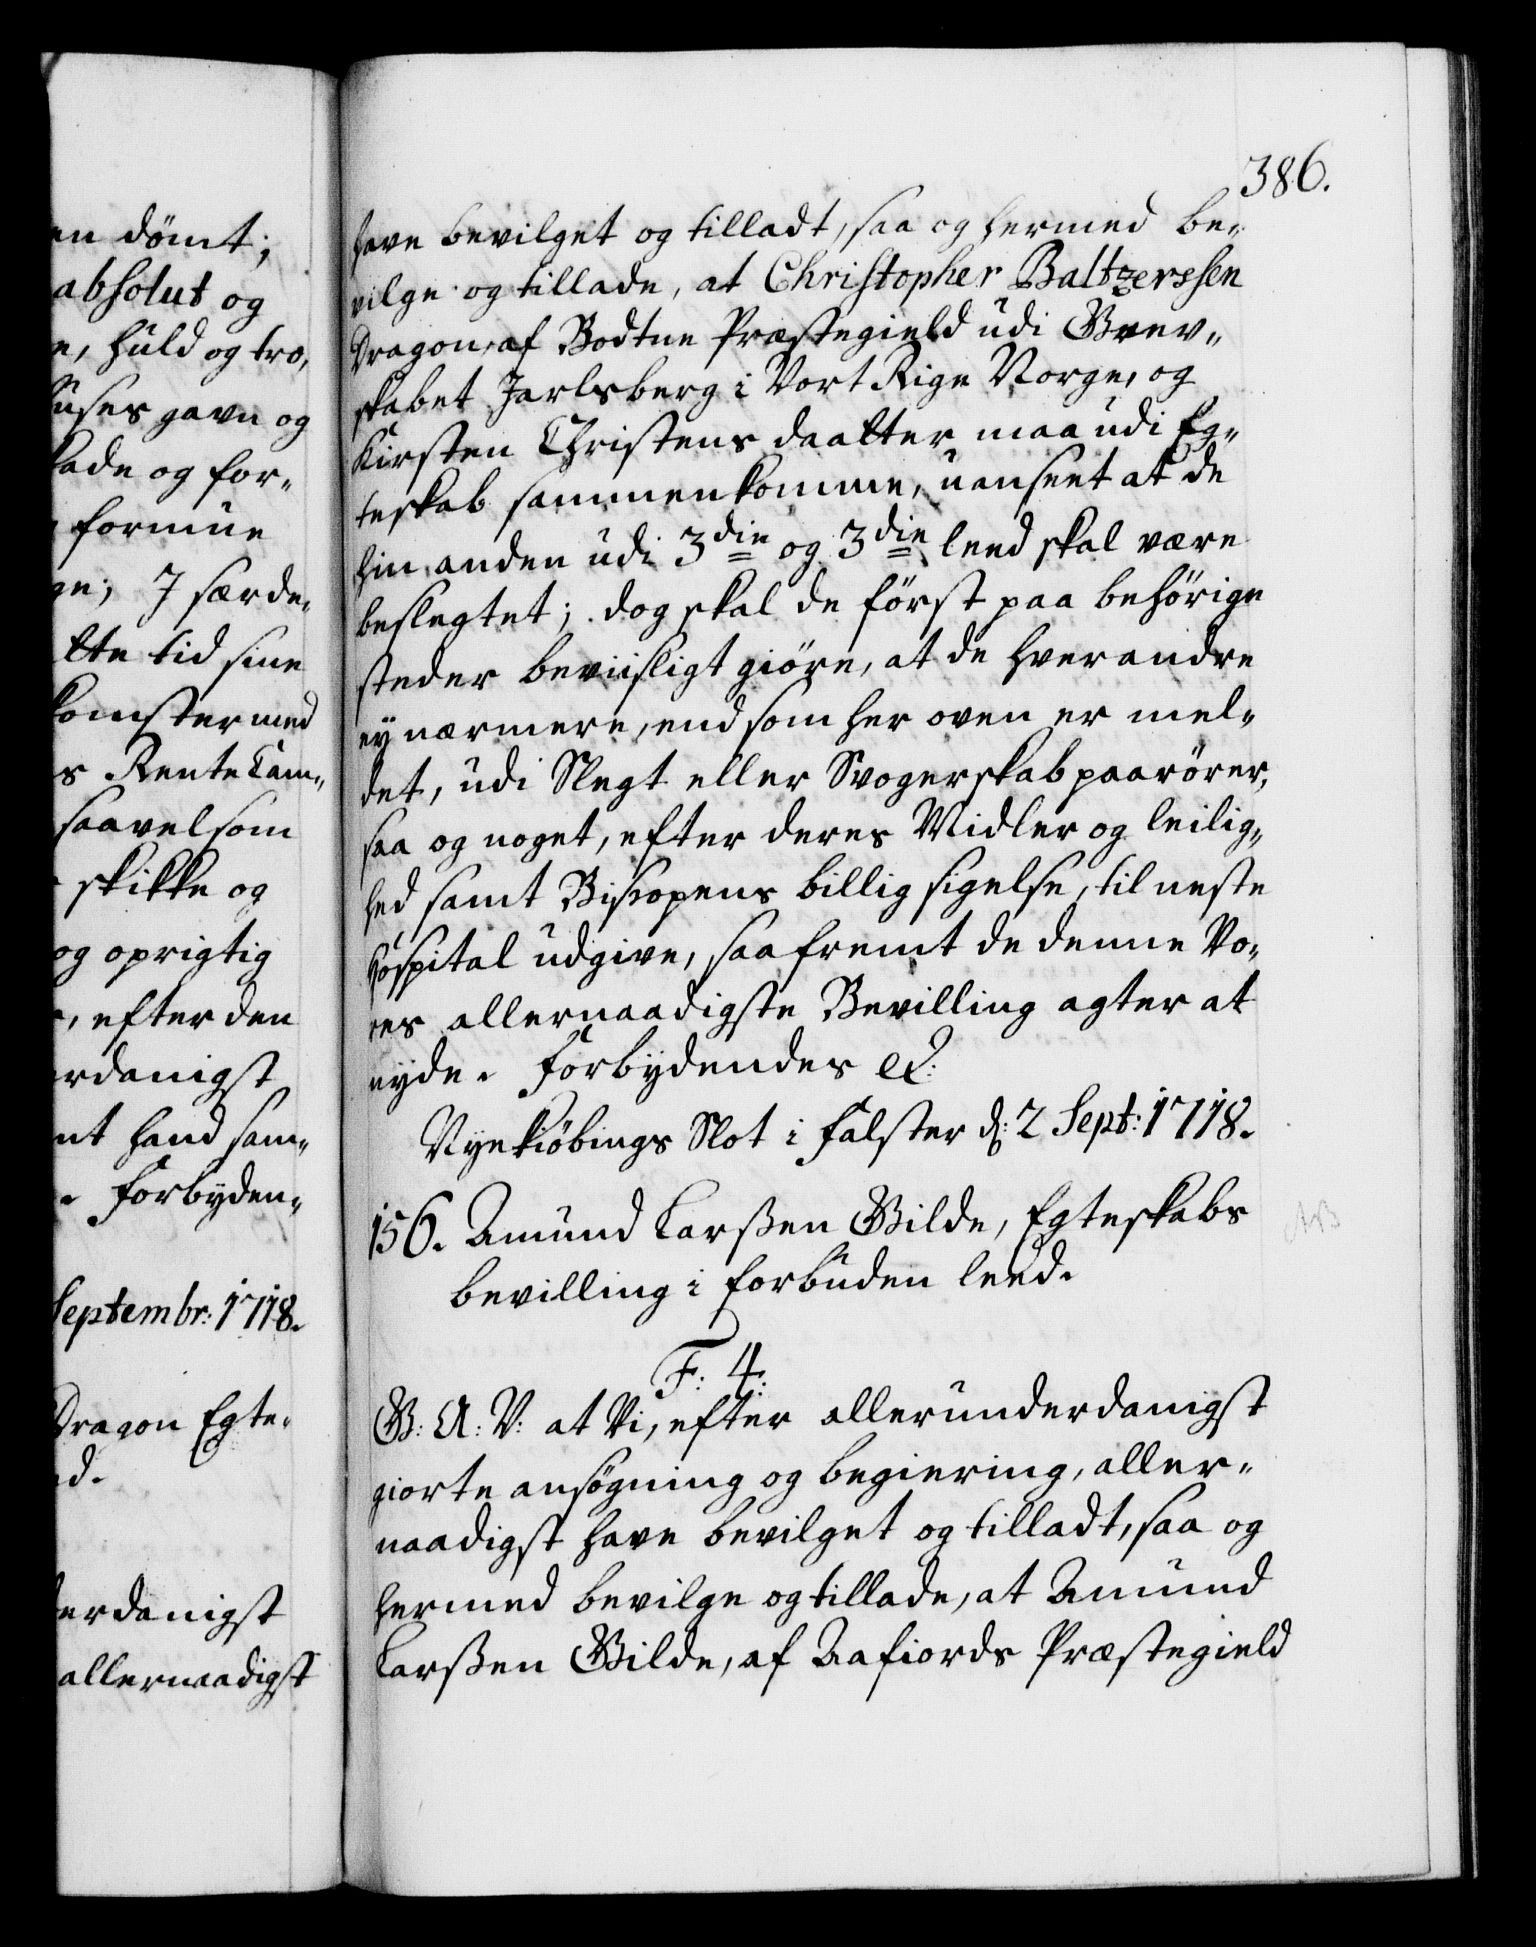 en dömt;
absolut og
e, huld og tro,
huses gavn og
kade og for-
formue
ge; J særde-
lte tid sine
komster med
s RenteCam-
saavelsom
skikke og
og oprigtig
, efter den
rdanigst
nt hand sam-
. Forbyden-
Septembr: 1718.
Dragon Egte-
d.
derdanigst
allernaadigst
386.
have bevilget og tilladt, saa og hermed be-
vilge og tillade, at Christopher Baltzerssen
Dragon, af Bodtne Præstegield udi Grev-
skabet Jarlsberg i Vort Rige Norge, og
Kirsten Christens daatter maa udi Eg-
teskab sammenkomme, uanseet at de
hin anden udi 3die og 3die leed skal være
beslegtet; dog skal de först paa behörige
steder beviisligt giöre, at de hverandre
ey nærmere, end som her oven er mel-
det, udi Slegt eller Svogerskab paarörer,
saa og noget, efter deres Midler og leilig-
hed samt Biskopens billig sigelse, til neste
Hospital udgive, saafremt de denne Vo-
res allernaadigste Bevilling agter at
nyde. Forbydendes etc.
Nyekiöbings Slot i Falster d: 2 Sept: 1718.
156. Amund Larssen Gilde, Egteskabs
bevilling i forbuden leed.
F: 4.
G: A: V: at Vi, efter allerunderdanigst
giorte ansögning og begiering, aller-
naadigst have bevilget og tilladt, saa og
hermed bevilge og tillade, at Amund
Larssen Gilde, af Aafiords Præstegield